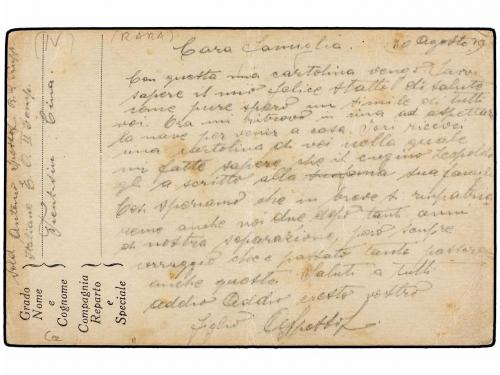 (RARA)
Cara Famiglia. 10 Agosto 19
Con questa mia cartolina vengo farvi
sapere il mio felice stato di salute
come pure spero un simile di tutti
voi. Ora mi ritrovo in una ad aspettar
la nave per venir a casa. Ieri ricevei
una cartolina di voi nella quale
mi fatte sapere che il cugino Leopoldo
gl a scritto alla sua famigl
Così speriamo che in breve si rimpatria
remo anche noi due dopo tanti anni
di nostra separazione, però sempre
corraggio che è passato tanto passerà
anche questo Saluti a tutti
addio Addio vostro
figlio
Sold. Antonio
Italiane
Tientsin Cina.
Grado
Nome
e
Cognome
Compagnia
Reparto
e
Speciale